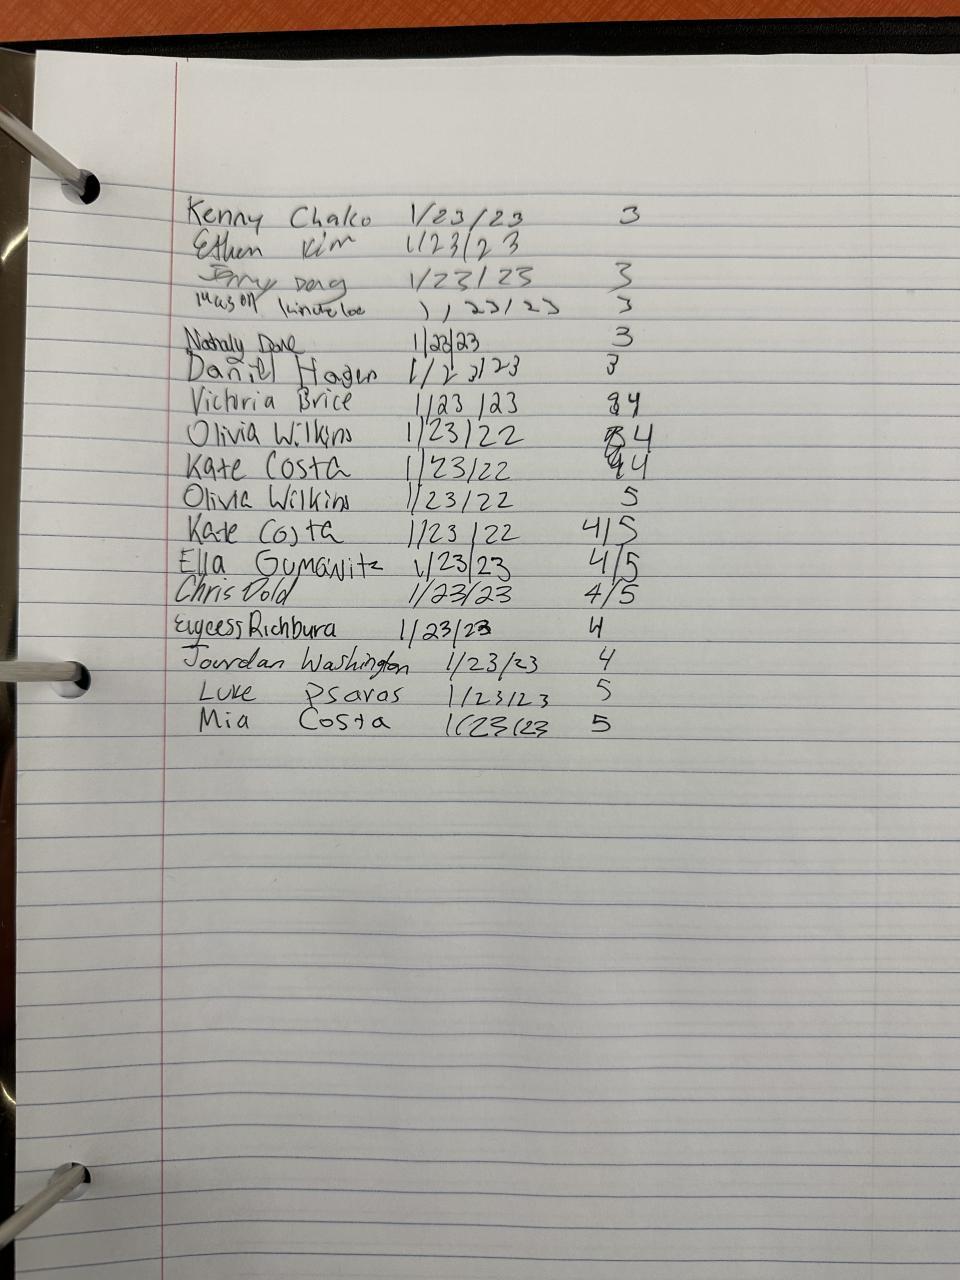 Kenny Chako 1/23/23 3
Ethan Kim 1/23/23
Jerry Dong 1/23/23 3
Mason 1/23/23 3
Nataly 1/23/23 3
Daniel Hagen 1/23/23 3
Victoria Brice 1/23/23 4
Olivia Wilkins 1/23/22 4
Kate Costa 1/23/22 4
Olivia Wilkins 1/23/22 5
Kate Costa 1/23/22 4/5
Ella Gumawitz 1/23/23 4/5
Chris Dold 1/23/23 4/5
Richbura 1/23/23 4
Jourdan Washington 1/23/23 4
Luke Psaras 1/23/23 5
Mia Costa 1/23/23 5